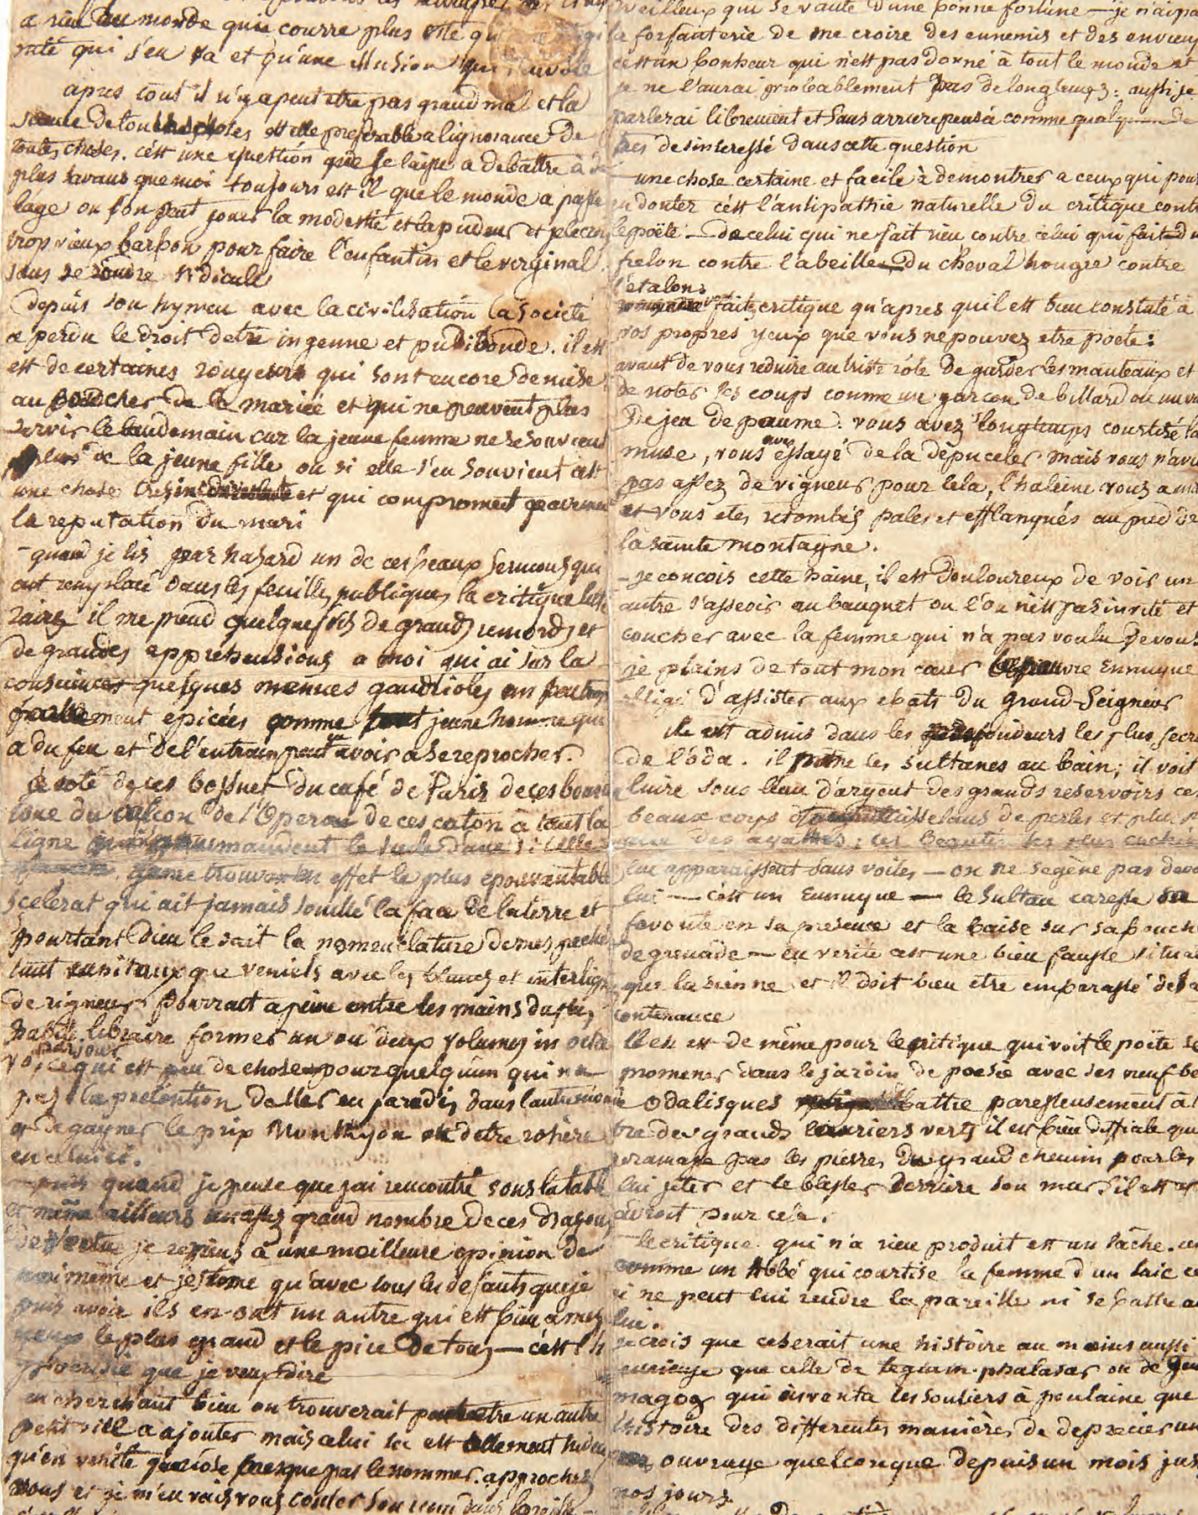 a rien au monde qui courre plus vite qu
nité qui s'en va et qu'une illusion qui s'envole
apres tout il n'y a peut etre pas grand mal et la
science de toutes choses est elle preferable a lignorance de
toutes choses. c'est une question que je laisse a debattre à de
plus savans que moi toujours est il que le monde a passé
lage ou l'on peut jouer la modestie et la pudeur et je le crois
trop vieux barbon pour faire l'enfantin et le virginal
sans se rendre ridicule
depuis son hymen avec la civilisation la societé
a perdu le droit detre ingenue et pudibonde. il est
est de certaines rougeurs qui sont encore de mise
au coucher de la mariée et qui ne peuvent plus
servir le lendemain car la jeune femme ne se souvient
plus de la jeune fille ou si elle s'en souvient c'est
une chose tres indecente et qui compromet gravement
la reputation du mari
- quand je lis par hazard un de ces beaux sermons qui
ont remplacé dans les feuilles publiques la critique litté
raire il me prend quelquefois de grands remords et
de grandes apprehensions a moi qui ai sur la
conscience quelques menues gaudrioles un peu trop
fortement epicées comme tout jeune homme qui
a du feu et de l'entrain peut avoir a se reprocher.
a coté de ces bossuet du café de Paris de ces bourda
loue du balcon de l'Opera de ces caton à tant la
ligne qui gourmandent le siecle d'une si belle
je me trouve en effet le plus epouvantable
scelerat qui ait jamais souillé la face de la terre et
pourtant Dieu le sait la nomenclature de mes pechés
tant capitaux que veniels avec les blancs et interlignes
de rigueur pourrait a peine entre les mains du plus
habile libraire former un ou deux volumes in octa
vo par jour ce qui est peu de chose pour quelqu'un qui n'a
pas la pretention d'aller en paradis dans l'autre monde
et de gagner le prix Monthyon ou detre rosière
en celui ci.
- puis quand je pense que j'ai rencontré sous la table
et même ailleurs un assez grand nombre de ces dragons
de vertu je reviens à une meilleure opinion de
moi même et j'estime qu'avec tous les defauts que je
puis avoir ils en ont un autre qui est bien a mes
yeux le plus grand et le pire de tous — c'est l'h
ypocrisie que je veux dire
en cherchant bien on trouverait peut etre un autre
petit vice a ajouter mais celui ci est tellement hideux
qu'en verité je n'ose presque pas le nommer. approchez
vous et je m'en vais vous couler son nom dans l'oreille —
veilleux qui se vante d'une bonne fortune — je n'ai pas
la forfanterie de me croire des ennemis et des envieux
c'est un bonheur qui n'est pas donné à tout le monde et
je ne l'aurai probablement pas de longtemps: aussi je
parlerai librement et sans arriere pensée comme quelqu'un de
tres desinteressé dans cette question
- une chose certaine et facile à demontrer a ceux qui pour
en douter c'est l'antipathie naturelle du critique contre
le poëte — de celui qui ne fait rien contre celui qui fait — du
frelon contre l'abeille — Du cheval hongre contre
l'etalon:
vous ne vous faites critique qu'apres qu'il est bien constaté à
vos propres yeux que vous ne pouvez etre poete:
avant de vous reduire au triste role de garder les manteaux et
de noter les coups comme un garçon de billard ou un va
de jeu de paume: vous avez longtemps courtisé la
muse, vous avez essayé de la depuceler mais vous n'ave
pas assez de vigueur pour cela, l'haleine vous a ma
et vous etes retombés pales et efflanqués au pied de
la sainte montagne.
- je concois cette haine, il est douloureux de voir un
autre s'asseoir au banquet ou l'on n'est pas invité et
coucher avec la femme qui n'a pas voulu de vous
je plains de tout mon cœur le pauvre Eunuque
obligé d'assister aux ebats du grand Seigneur
il est admis dans les profondeurs les plus secr
de l'oda. il mene les sultanes au bain; il voit
luire sous l'eau d'argent des grands reservoirs ces
beaux corps tout ruisselans de perles et plus
que des agathes; les beautés les plus cachées
lui apparaissent sans voiles — on ne se gène pas deva
lui — c'est un Eunuque — le sultan caresse sa
favorite en sa presence et la baise sur sa bouche
de grenade — en verité c'est une bien fausse situa
que la sienne et il doit bien etre embarassé de sa
contenance
Il en est de même pour le critique qui voit le poëte se
promener dans le jardin de poesie avec ses neuf be
odalisques et s'ebattre paresseusement à l'om
bre de grands lauriers verts il est bien difficile qu'
ramasse pas les pierres du grand chemin pour les
lui jeter et le blesser derriere son mur s'il est a
adroit pour cela.
- le critique qui n'a rien produit est un lâche. c'
comme un Abbé qui courtise la femme d'un laic ce
i ne peut lui rendre la pareille ni se battre av
lui.
je crois que ce serait une histoire au moins aussi
curieuse que celle de teglath-phalasar ou de Gem
magog qui inventa les souliers à poulaine que
l'histoire des differentes manières de deprecier un
ouvrage quelconque depuis un mois jus
nos jours